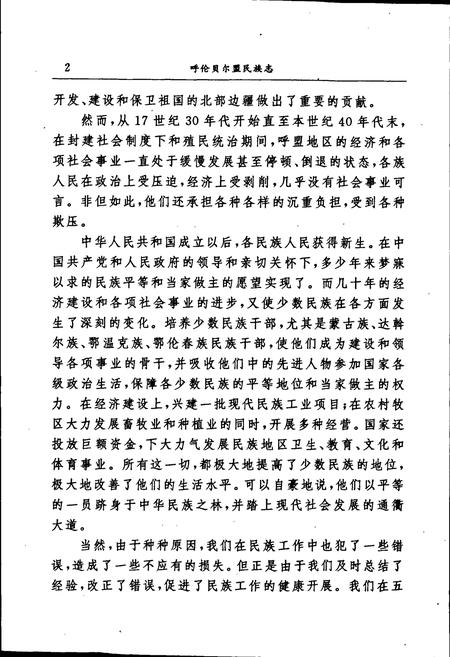 2 呼伦贝尔盟民族志
开发、建设和保卫祖国的北部边疆做出了重要的贡献。
然而,从17世纪30年代开始直至本世纪40年代末,
在封建社会制度下和殖民统治期间,呼盟地区的经济和各
项社会事业一直处于缓慢发展甚至停顿、倒退的状态,各族
人民在政治上受压迫,经济上受剥削,几乎没有社会事业可
言。非但如此,他们还承担各种各样的沉重负担,受到各种
欺压。
中华人民共和国成立以后,各民族人民获得新生。在中
国共产党和人民政府的领导和亲切关怀下,多少年来梦寐
以求的民族平等和当家做主的愿望实现了。而几十年的经
济建设和各项社会事业的进步,又使少数民族在各方面发
生了深刻的变化。培养少数民族干部,尤其是蒙古族、达斡
尔族、鄂温克族、鄂伦春族民族干部,使他们成为建设和领
导各项事业的骨干,并吸收他们中的先进人物参加国家各
级政治生活,保障各少数民族的平等地位和当家做主的权
力。在经济建设上,兴建一批现代民族工业项目;在农村牧
区大力发展畜牧业和种植业的同时,开展多种经营。国家还
投放巨额资金,下大力气发展民族地区卫生、教育、文化和
体育事业。所有这一切,都极大地提高了少数民族的地位,
极大地改善了他们的生活水平。可以自豪地说,他们以平等
的一员跻身于中华民族之林,并踏上现代社会发展的通衢
大道。
当然,由于种种原因,我们在民族工作中也犯了一些错
误,造成了一些不应有的损失。但正是由于我们及时总结了
经验,改正了错误,促进了民族工作的健康开展。我们在五